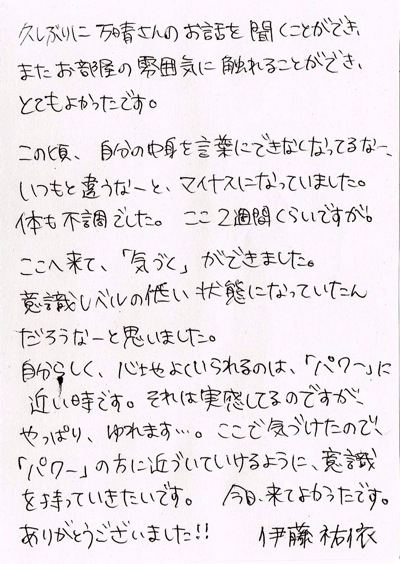 久しぶりに 万晴さんの お話を 聞くことができ、
また お部屋の 雰囲気に 触れることができ、
とてもよかったです。
この頃、自分の中身を言葉にできなくなってるなー、
いつもと違うなーと、マイナスになっていました。
体も不調でした。 ここ 2週間くらいですが。
ここへ来て、「気づく」ができました。
意識レベルの低い状態になっていたん
だろうなーと思いました。
自分らしく、心地よくいられるのは、「パワー」に
近い時です。それは実感してるのですが、
やっぱり、ゆれます…。ここで気づけたので、
「パワー」の方に近づいていけるように、意識
を持っていきたいです。 今日、来てよかったです。
ありがとうございました!! 伊藤 祐依